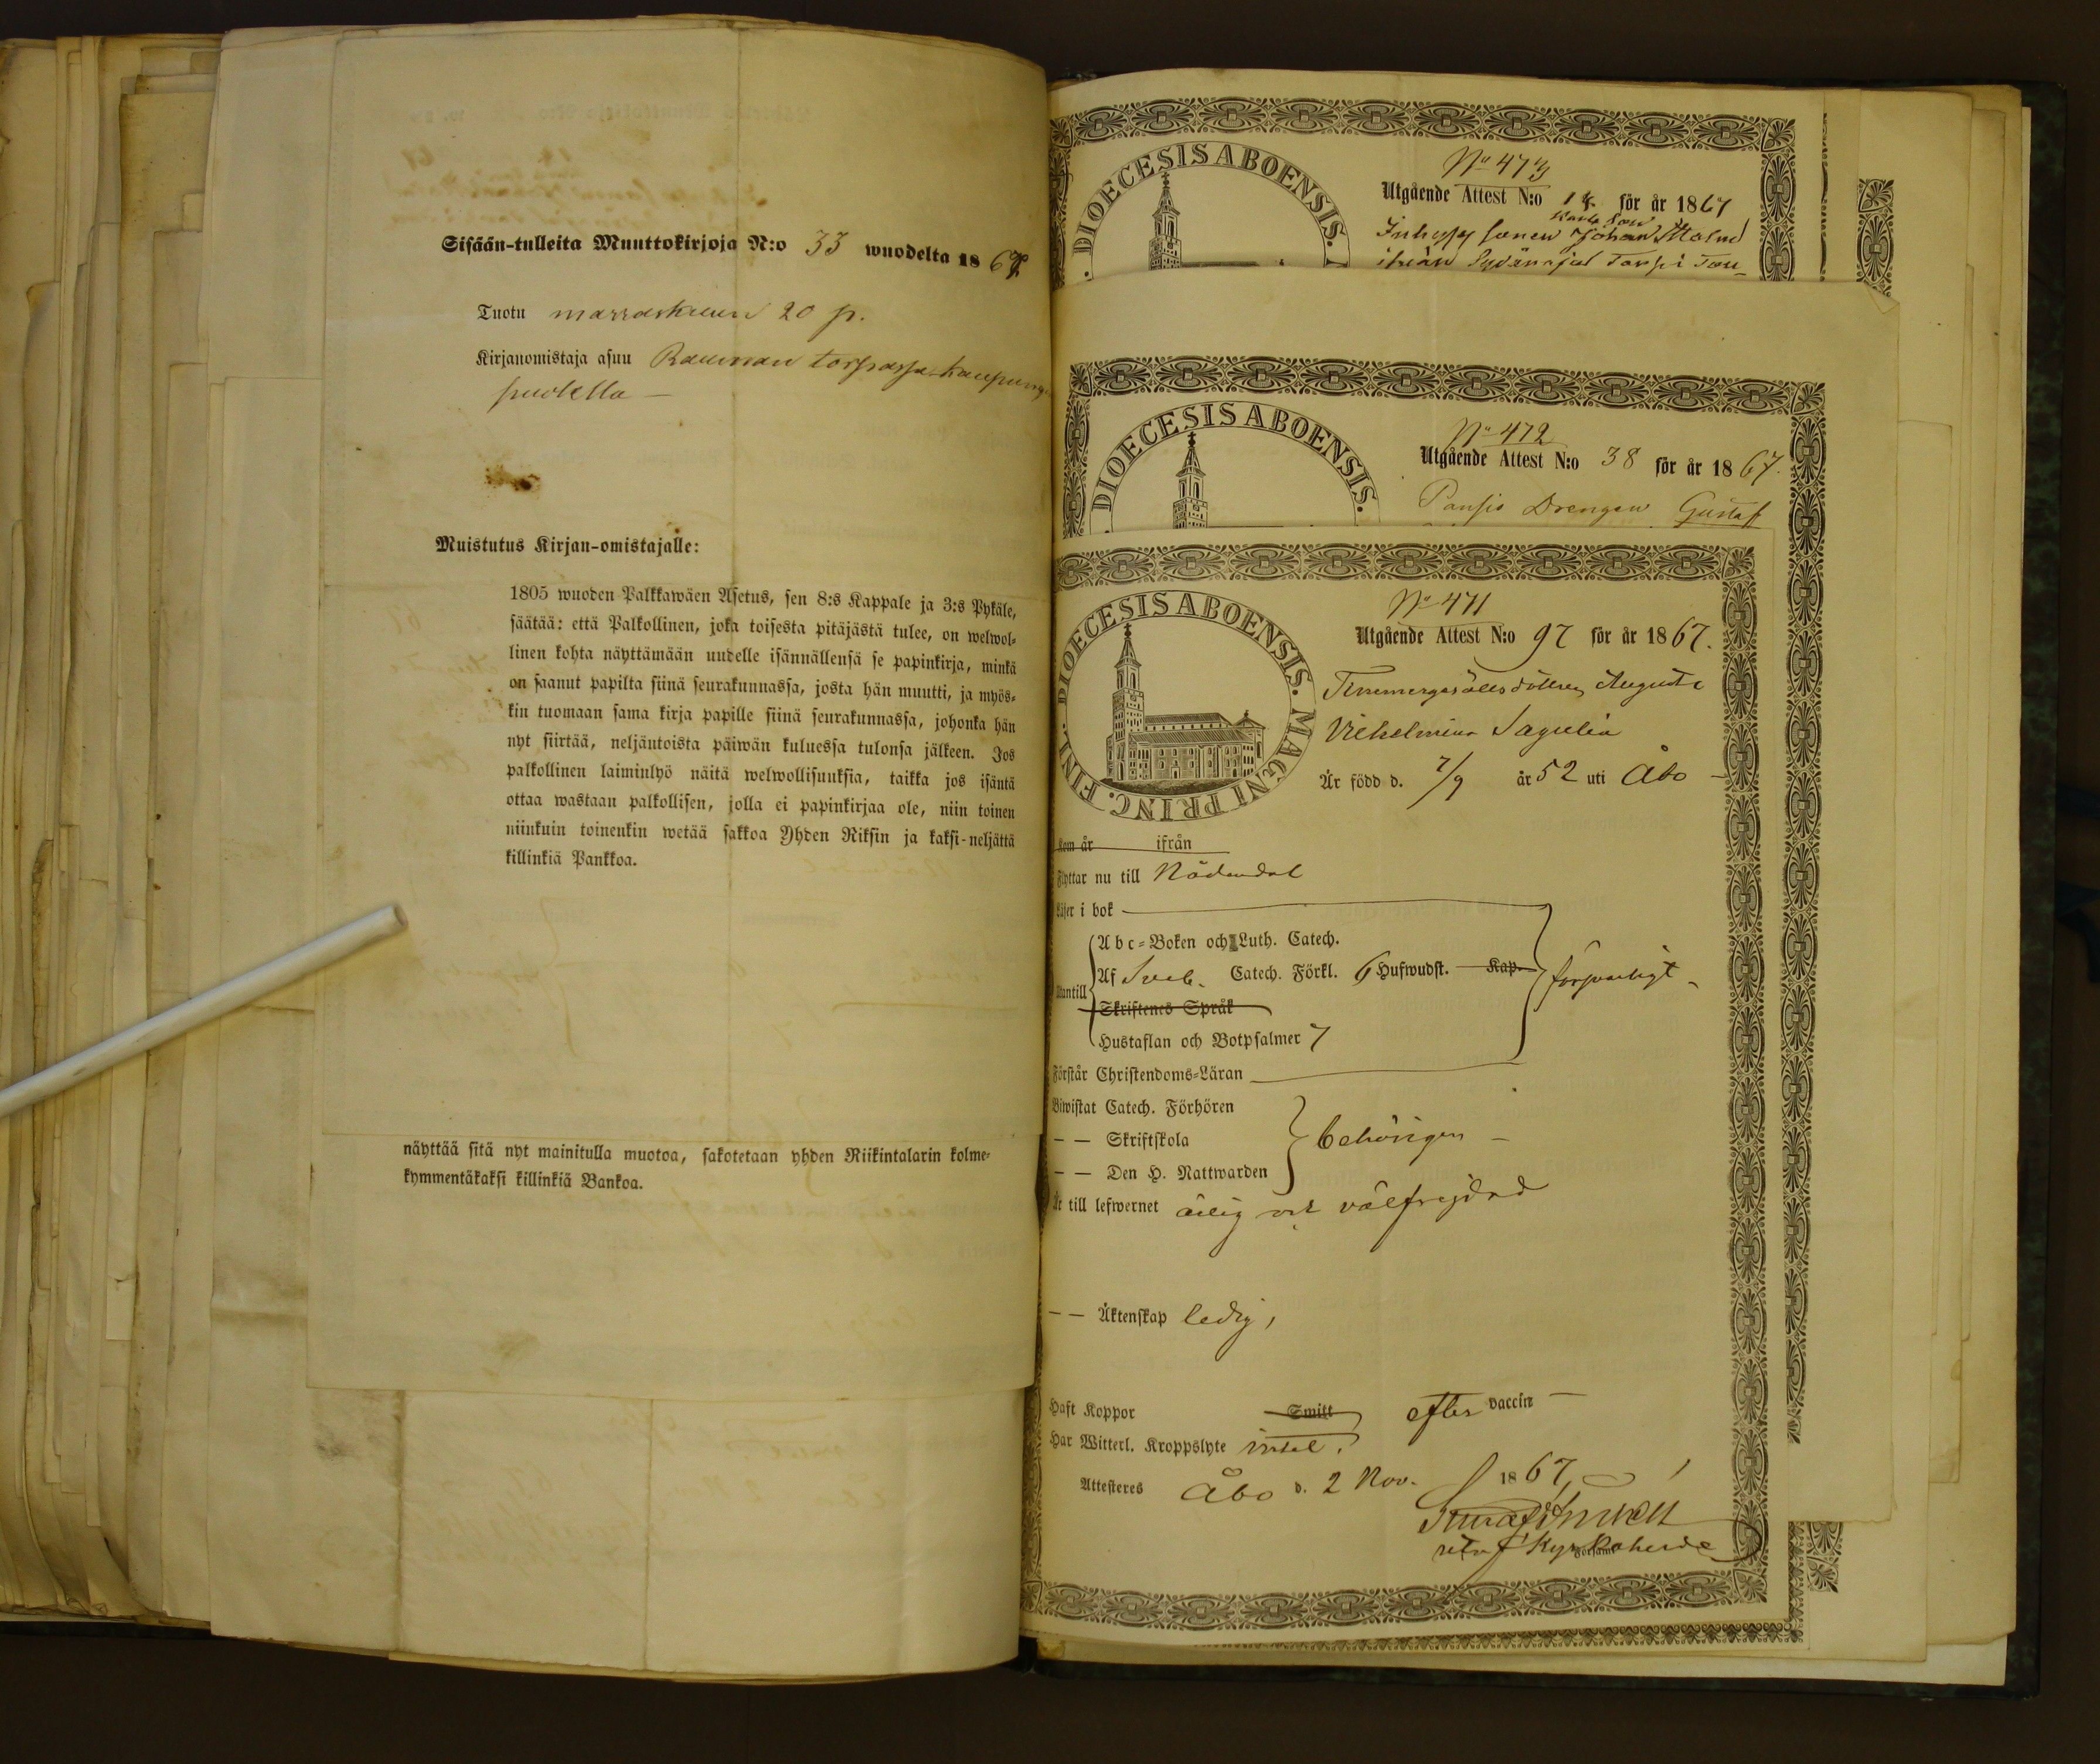 Sisään-tulleita Muuttokirjoja N:o 33 wuodelta 1867
Tuotu marraskuun 20 p.
Kirjanomistaja asuu Rauman torpassa kaupung
puolella —
Muistutus Kirjan-omistajalle:
1805 wuoden Palkkawäen Asetus, sen 8:s Kappale ja 3:s Pykäle,
säätää: että Palkollinen, joka toisesta pitäjästä tulee, on welwol-
linen kohta näyttämään uudelle isännällensä se papinkirja, minkä
on saanut papilta siinä seurakunnassa, josta hän muutti, ja myös-
kin tuomaan sama kirja papille siinä seurakunnassa, johonka hän
nyt siirtää, neljäntoista päiwän kuluessa tulonsa jälkeen. Jos
palkollinen laiminlyö näitä welwollisuuksia, taikka jos isäntä
ottaa wastaan palkollisen, jolla ei papinkirjaa ole, niin toinen
niinkuin toinenkin wetää sakkoa Yhden Riksin ja kaksi-neljättä
killinkiä Pankkoa.
näyttää sitä nyt mainitulla muotoa, sakotetaan yhden Riikintalarin kolme-
kymmentäkaksi killinkiä Bankoa.
DIOECESIS ABOENSIS.
No 473
Utgående Attest N:o 14 för år 1867
sonen Johan Malm
ifrån Torp i
DIOECESIS ABOENSIS.
No 472
Utgående Attest N:o 38 för år 1867.
Pansio Drengen Gustaf
DIOECESIS ABOENSIS. MAGNI PRINC. FINL.
No 471
Utgående Attest N:o 97 för år 1867.
Augusta
Vilhelmina Sagulin
Är född d. 7/9 år 52 uti Åbo
Kom år ifrån
Flyttar nu till Nådendal
Läser i bok
Abc-Boken och Luth. Catech.
Af Sveb. Catech. Förkl. 6 Hufwudst. Kap.
försvarligt
Utantill
Skriftenes Språk
Hustaflan och Botpsalmer 7
Förstår Christendoms-Läran
Biwistat Catech. Förhören
— — Skriftskola
behörigen —
— — Den H. Nattwarden
Är till lefwernet ärlig och välfrejdad
— — Äktenskap ledig,
Haft Koppor Smitt efter vaccin —
Har Witterl. Kroppslyte intet.
Attesteres Åbo d. 2 Nov. 1867
Kyrkoherde